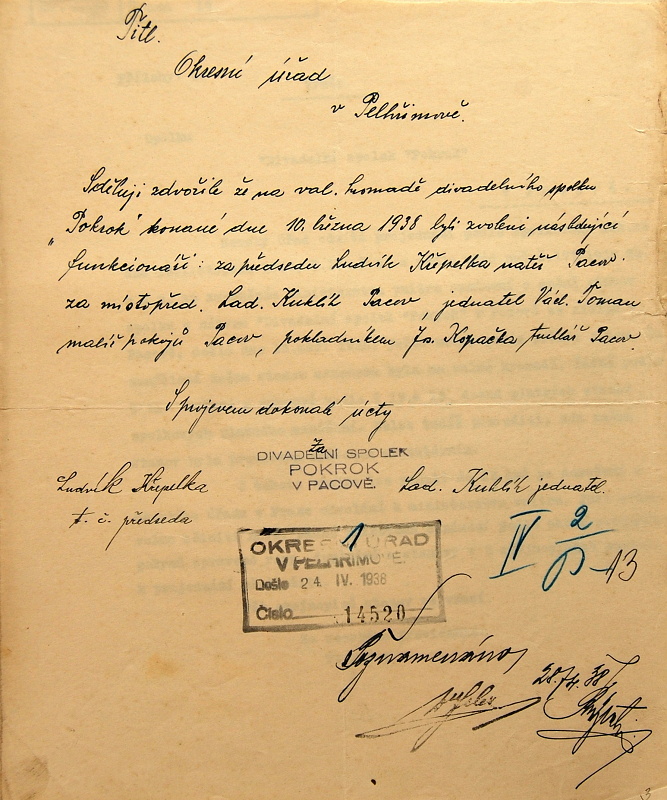 Titl.
Okresní úřad
v Pelhřimově.
Sděluji zdvořile že na val. hromadě divadelního spolku
„Pokrok" konané dne 10. března 1938 byli zvoleni následující
funkcionáři: za předsedu Ludvík Křepelka natěš Pacov.
za místopřed. Lad. Kuklík Pacov, jednatel Václ. Toman
malíř pokojů Pacov, pokladníkem Jos. Kopačka truhlář Pacov.
S projevem dokonalé úcty
Za
DIVADELNÍ SPOLEK
POKROK
V PACOVĚ.
Ludvík Křepelka
t. č. předseda
Lad. Kuklík jednatel.
OKRESNÍ ÚŘAD
V PELHŘIMOVĚ.
Došlo 24. IV. 1938
Číslo 14520
1
IV 2/13
Poznamenáno
28./4. 38
3